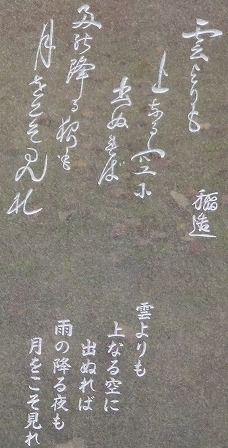 雲よりも
上なる空に
出ぬれば
雨の降る夜も
月をこそ見れ
稲造
雲よりも
上なる空に
出ぬれば
雨の降る夜も
月をこそ見れ